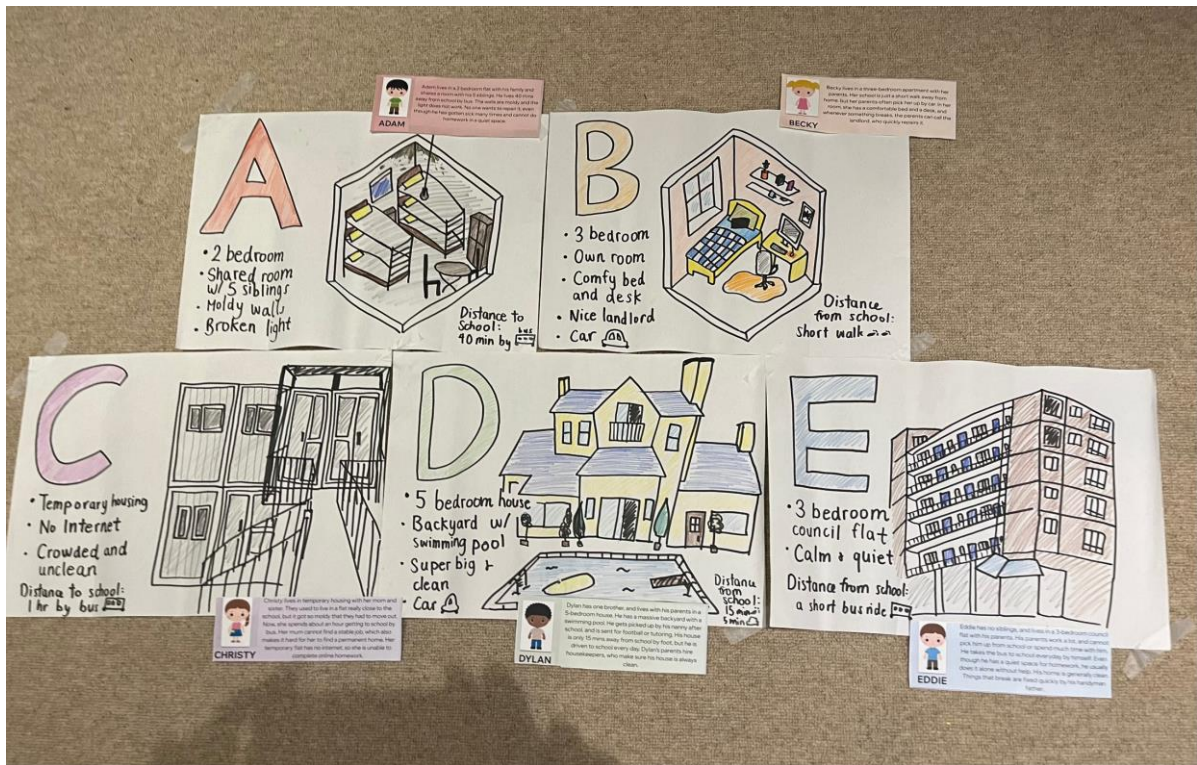 Adam lives in a 2 bedroom flat with his family and
shares a room with his 5 siblings. He lives 40 mins
away from school by bus. The walls are moldy and the
light does not work. No one wants to repair it, even
though he has gotten sick many times and cannot do
homework in a quiet space.
ADAM
Becky lives in a three-bedroom apartment with her
parents. Her school is just a short walk away from
home. But her parents often pick her up by car. In her
room, she has a comfortable bed and a desk, and
whenever something breaks, the parents can call the
landlord, who quickly repairs it.
BECKY
A
• 2 bedroom
• Shared room
w/ 5 siblings
• Moldy walls
• Broken light
Distance to
School:
40 min by bus
B
• 3 bedroom
• Own room
• Comfy bed
and desk
• Nice landlord
• Car
Distance
from school:
short walk
C
• Temporary housing
• No Internet
• Crowded and
unclean
Distance to school:
1 hr by bus
Christy lives in temporary housing with her mom and
sister. They used to live in a flat really close to the
school, but it got so moldy that they had to move out.
Now, she spends about an hour getting to school by
bus. Her mum cannot find a stable job, which also
makes it hard for her to find a permanent home. Her
temporary flat has no internet, so she is unable to
complete online homework.
CHRISTY
D
• 5 bedroom house
• Backyard w/
swimming pool
• Super big +
clean
• Car
Distance
from
school:
15 min
5 min
Dylan has one brother, and lives with his parents in a
5-bedroom house. He has a massive backyard with a
swimming pool. He gets picked up by his nanny after
school, and is sent for football or tutoring. His house
is only 15 mins away from school by foot, but he is
driven to school every day. Dylan's parents hire
housekeepers, who make sure his house is always
clean.
DYLAN
E
• 3 bedroom
council flat
• Calm + quiet
Distance from school:
a short bus ride
Eddie has no siblings, and lives in a 3-bedroom council
flat with his parents. His parents work a lot, and cannot
pick him up from school or spend much time with him.
He takes the bus to school everyday by himself. Even
though he has a quiet space for homework, he usually
does it alone without help. His home is generally clean.
Things that break are fixed quickly by his handyman
father.
EDDIE